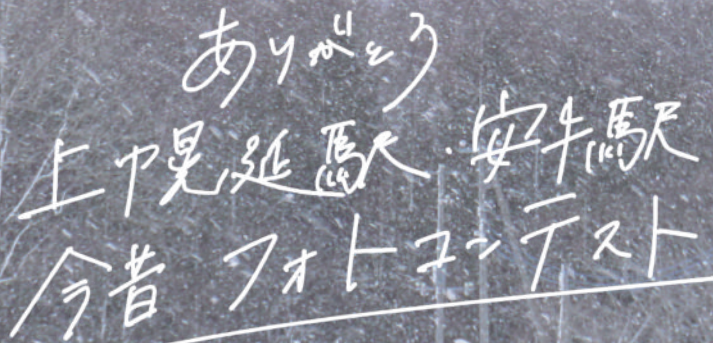 ありがとう
上幌延駅・安牛駅
今昔 フォトコンテスト